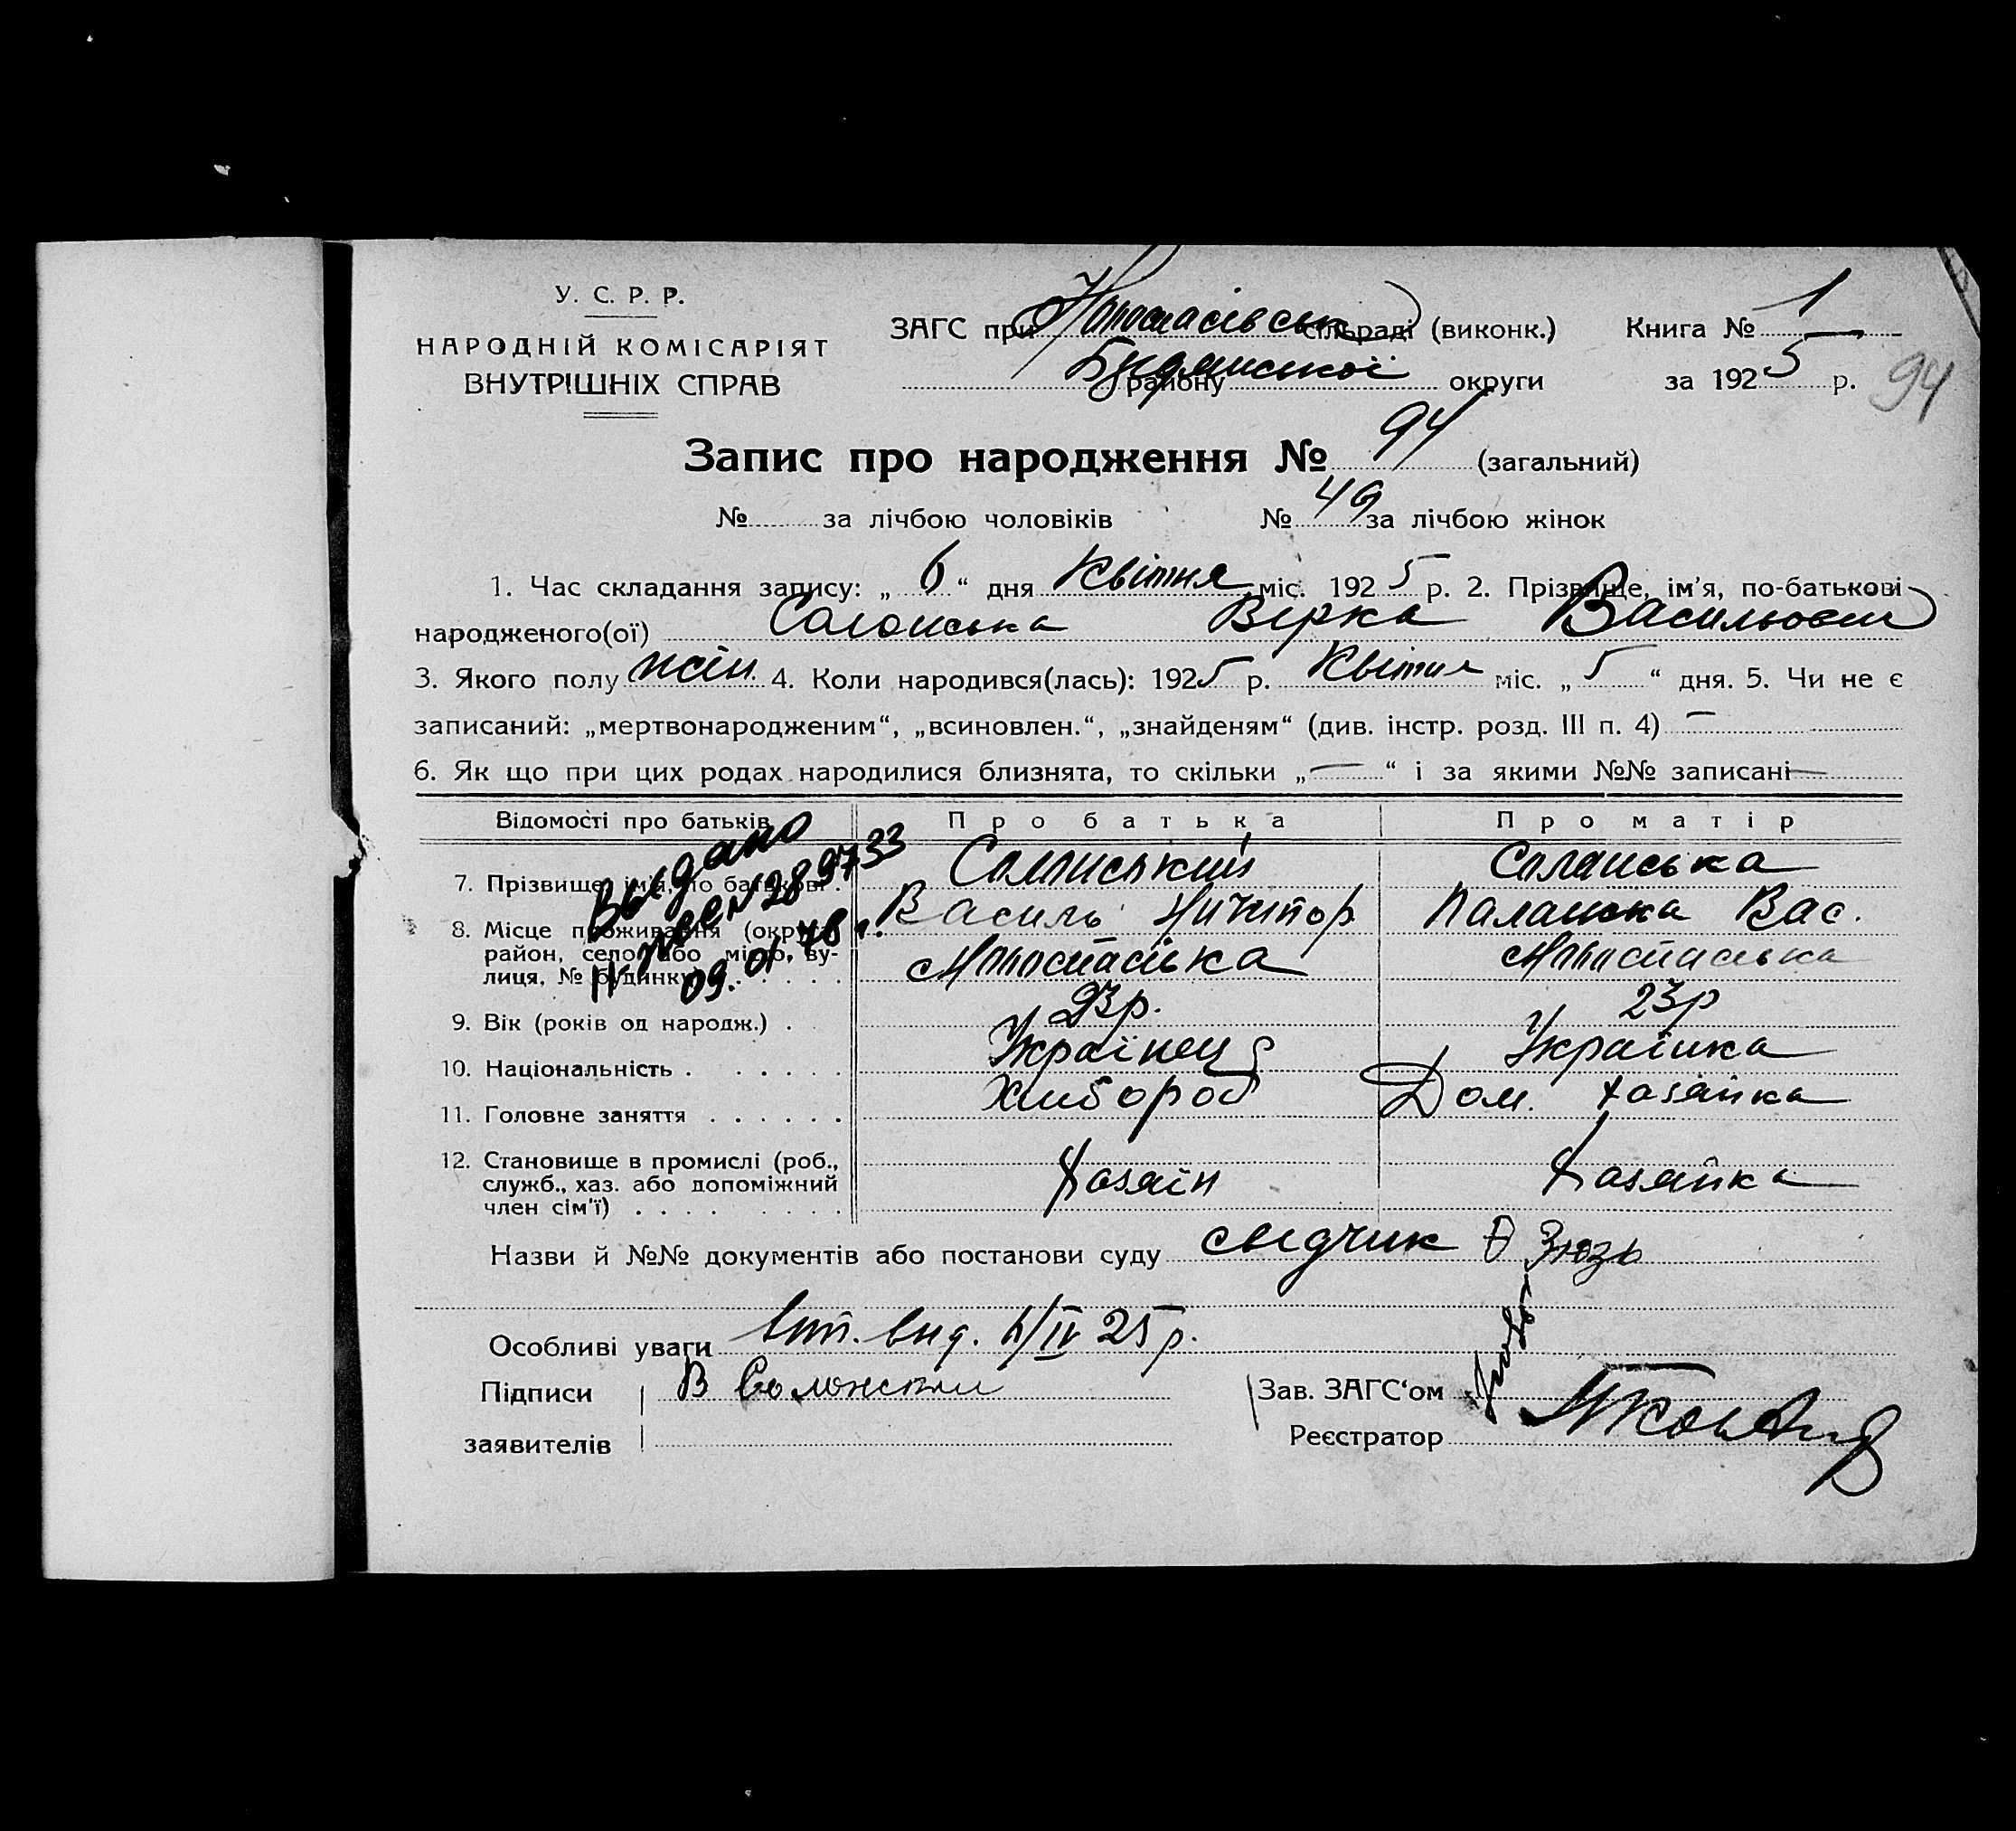 У. С. Р. Р.
НАРОДНІЙ КОМІСАРІЯТ
ВНУТРІШНІХ СПРАВ
ЗАГС при сільраді (виконк.) Книга № 1
району округи за 1925 р. 94
Запис про народження № 94 (загальний)
№ за лічбою чоловіків № 49 за лічбою жінок
1. Час складання запису: „ 6 “ дня Квітня міс. 1925 р. 2. Прізвище, ім’я, по-батькові
народженого(ої) Солонська Вірка Васильовна
3. Якого полу жін. 4. Коли народився(лась): 1925 р. Квітня міс. „ 5 “ дня. 5. Чи не є
записаний: „мертвонародженим“, „всиновлен.“, „знайденям“ (див. інстр. розд. III п. 4) —
6. Як що при цих родах народилися близнята, то скільки „ — “ і за якими №№ записані —
Відомости про батьків Про батька Про матір
7. Прізвище, імя, по батькові . Солонський Солонська
Василь Ничипор Палашка Вас.
8. Місце проживання (округа, район, село або місто, вулиця, № будинку) . . . . . . Моностирська
9. Вік (років од народж.) . 23р. 23р
10. Національність . . . . . . Українец Українка
11. Головне заняття . . . . . . Хлібороб Дом. хазяйка
12. Становище в промислі (роб., служб., хаз. або допоміжний член сім’ї) . . . . . . . . Хазяїн Хазяйка
Выдано
№ 289733
09.01.78 г.
Назви й №№ документів або постанови суду Зюзь
Особливі уваги вит. вид. 6/IV 25 р.
Підписи В Солонский Зав. ЗАГС‘ом
заявителів Реєстратор